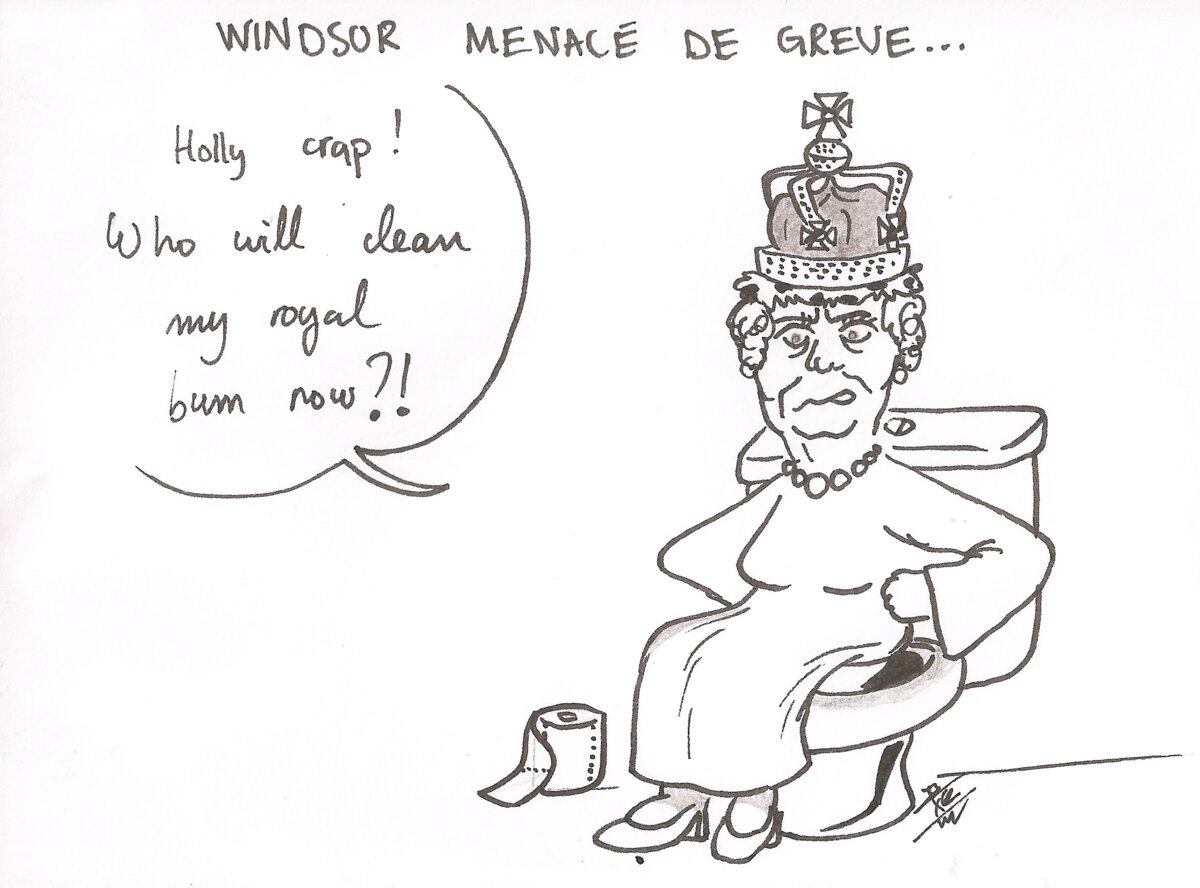 WINDSOR MENACÉ DE GREVE...
Holly crap!
Who will clean
my royal
bum now?!